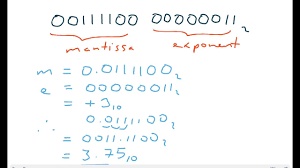 00111100 00000011₂
mantissa exponent
m = 0.0111100₂
e = 00000011₂
= +3₁₀
∴ 0.0111100₂
= 0011.1100₂
= 3.75₁₀